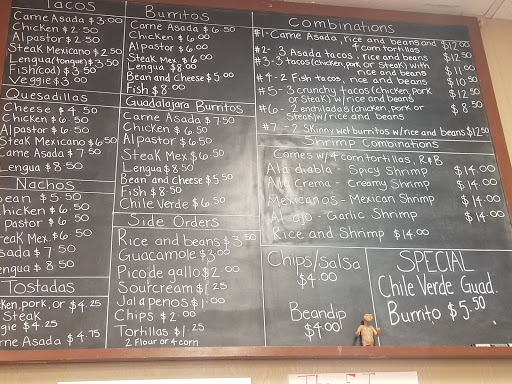 Tacos
Carne Asada $3.00
Chicken $2.50
Al pastor $2.50
Steak Mexicano $2.50
Lengua (tongue) $3.50
Fish (cod) $3.50
Veggie $3.00
Quesadillas
Cheese $4.50
Chicken $6.50
Al pastor $6.50
Steak Mexicano $6.50
Carne Asada $7.50
Lengua $8.50
Nachos
Bean $5.50
Chicken $6.50
Pastor $6.50
Steak Mex. $6.50
Asada $7.50
Lengua $8.50
Tostadas
Chicken, pork, or $4.25
Steak
Veggie $4.25
Carne Asada $4.75
Burritos
Carne Asada $6.50
Chicken $6.00
Al pastor $6.00
Steak Mex. $6.00
Lengua $8.00
Bean and Cheese $5.00
Fish $8.00
Guadalajara Burritos
Carne Asada $7.50
Chicken $6.50
Al pastor $6.50
Steak Mex $6.50
Lengua $8.50
Bean and Cheese $5.50
Fish $8.50
Chile Verde $6.50
Side Orders
Rice and beans $3.50
Guacamole $3.00
Pico de gallo $2.00
Sour cream $1.25
Jalapenos $1.00
Chips $2.00
Tortillas $1.25
2 Flour or 4 corn
Combinations
#1- Carne Asada, rice and beans and $12.00
4 corn tortillas
#2- 3 Asada tacos - rice and beans $12.50
#3- 3 tacos (chicken, pork or Steak) with $11.00
rice and beans
#4- 2 Fish tacos, rice and beans $10.50
#5- 3 crunchy tacos (chicken, pork $12.50
or Steak) w/rice and beans
#6- 2 enchiladas (chicken, pork or $8.50
Steak) w/rice and beans
#7- 2 Skinny wet burritos w/rice and beans $12.50
Shrimp Combinations
Comes w/ 4 corn tortillas, R & B
Ala diabla - Spicy Shrimp $14.00
Ala Crema - Creamy Shrimp $14.00
Mexicanos - Mexican Shrimp $14.00
Al ajo - Garlic Shrimp $14.00
Rice and Shrimp $14.00
Chips/salsa
$4.00
Beandip
$4.00
SPECIAL
Chile Verde Guad.
Burrito $5.50